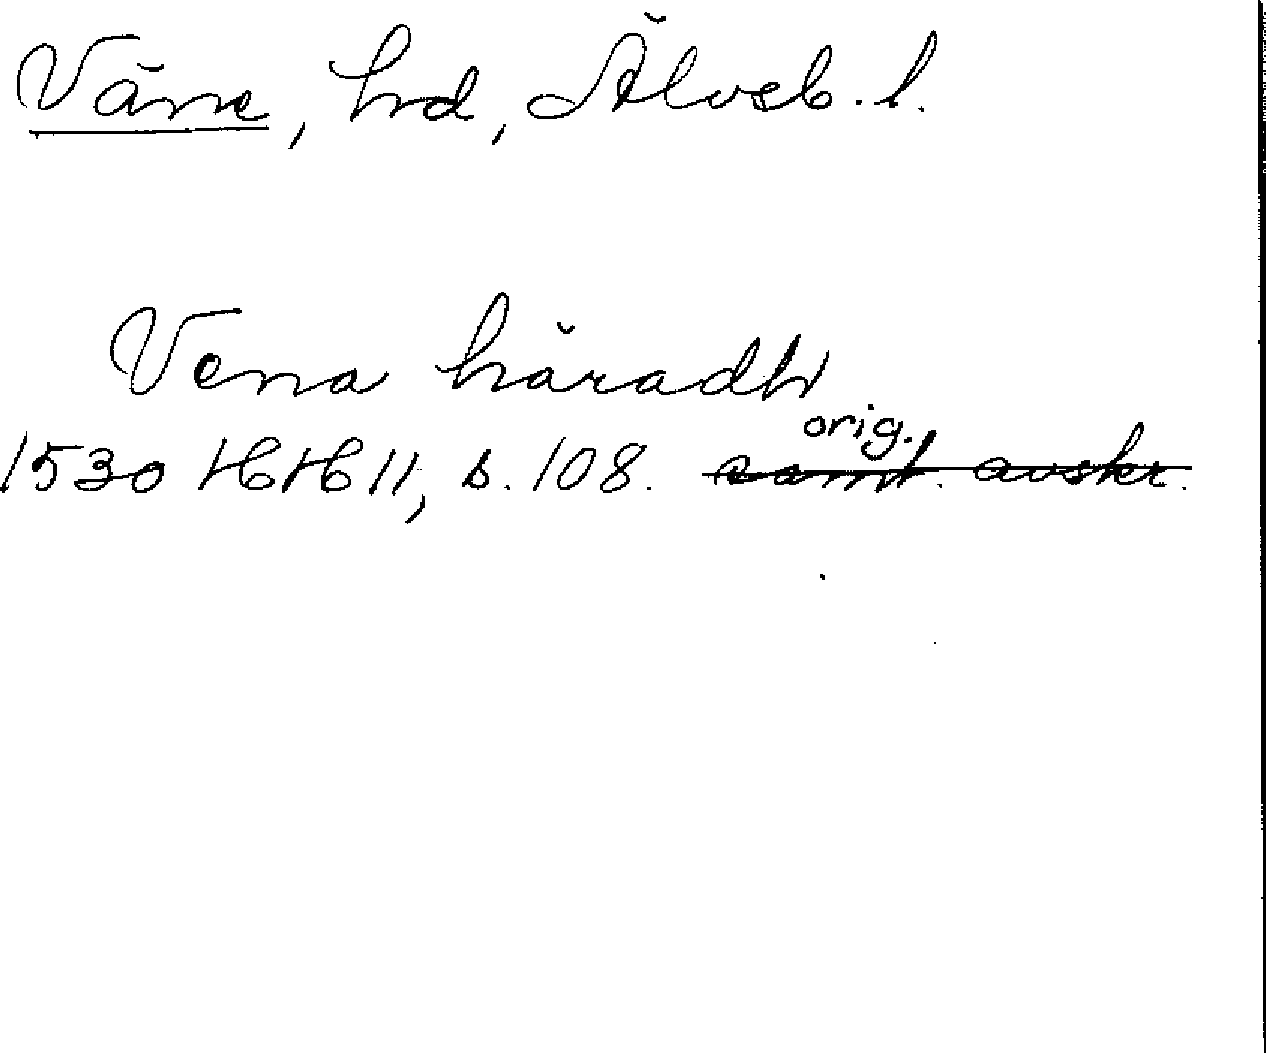 Väne, hrd, Älvsb. l.
Vena häradh
orig.
1530 HH 11, s. 108. samt. avskr.